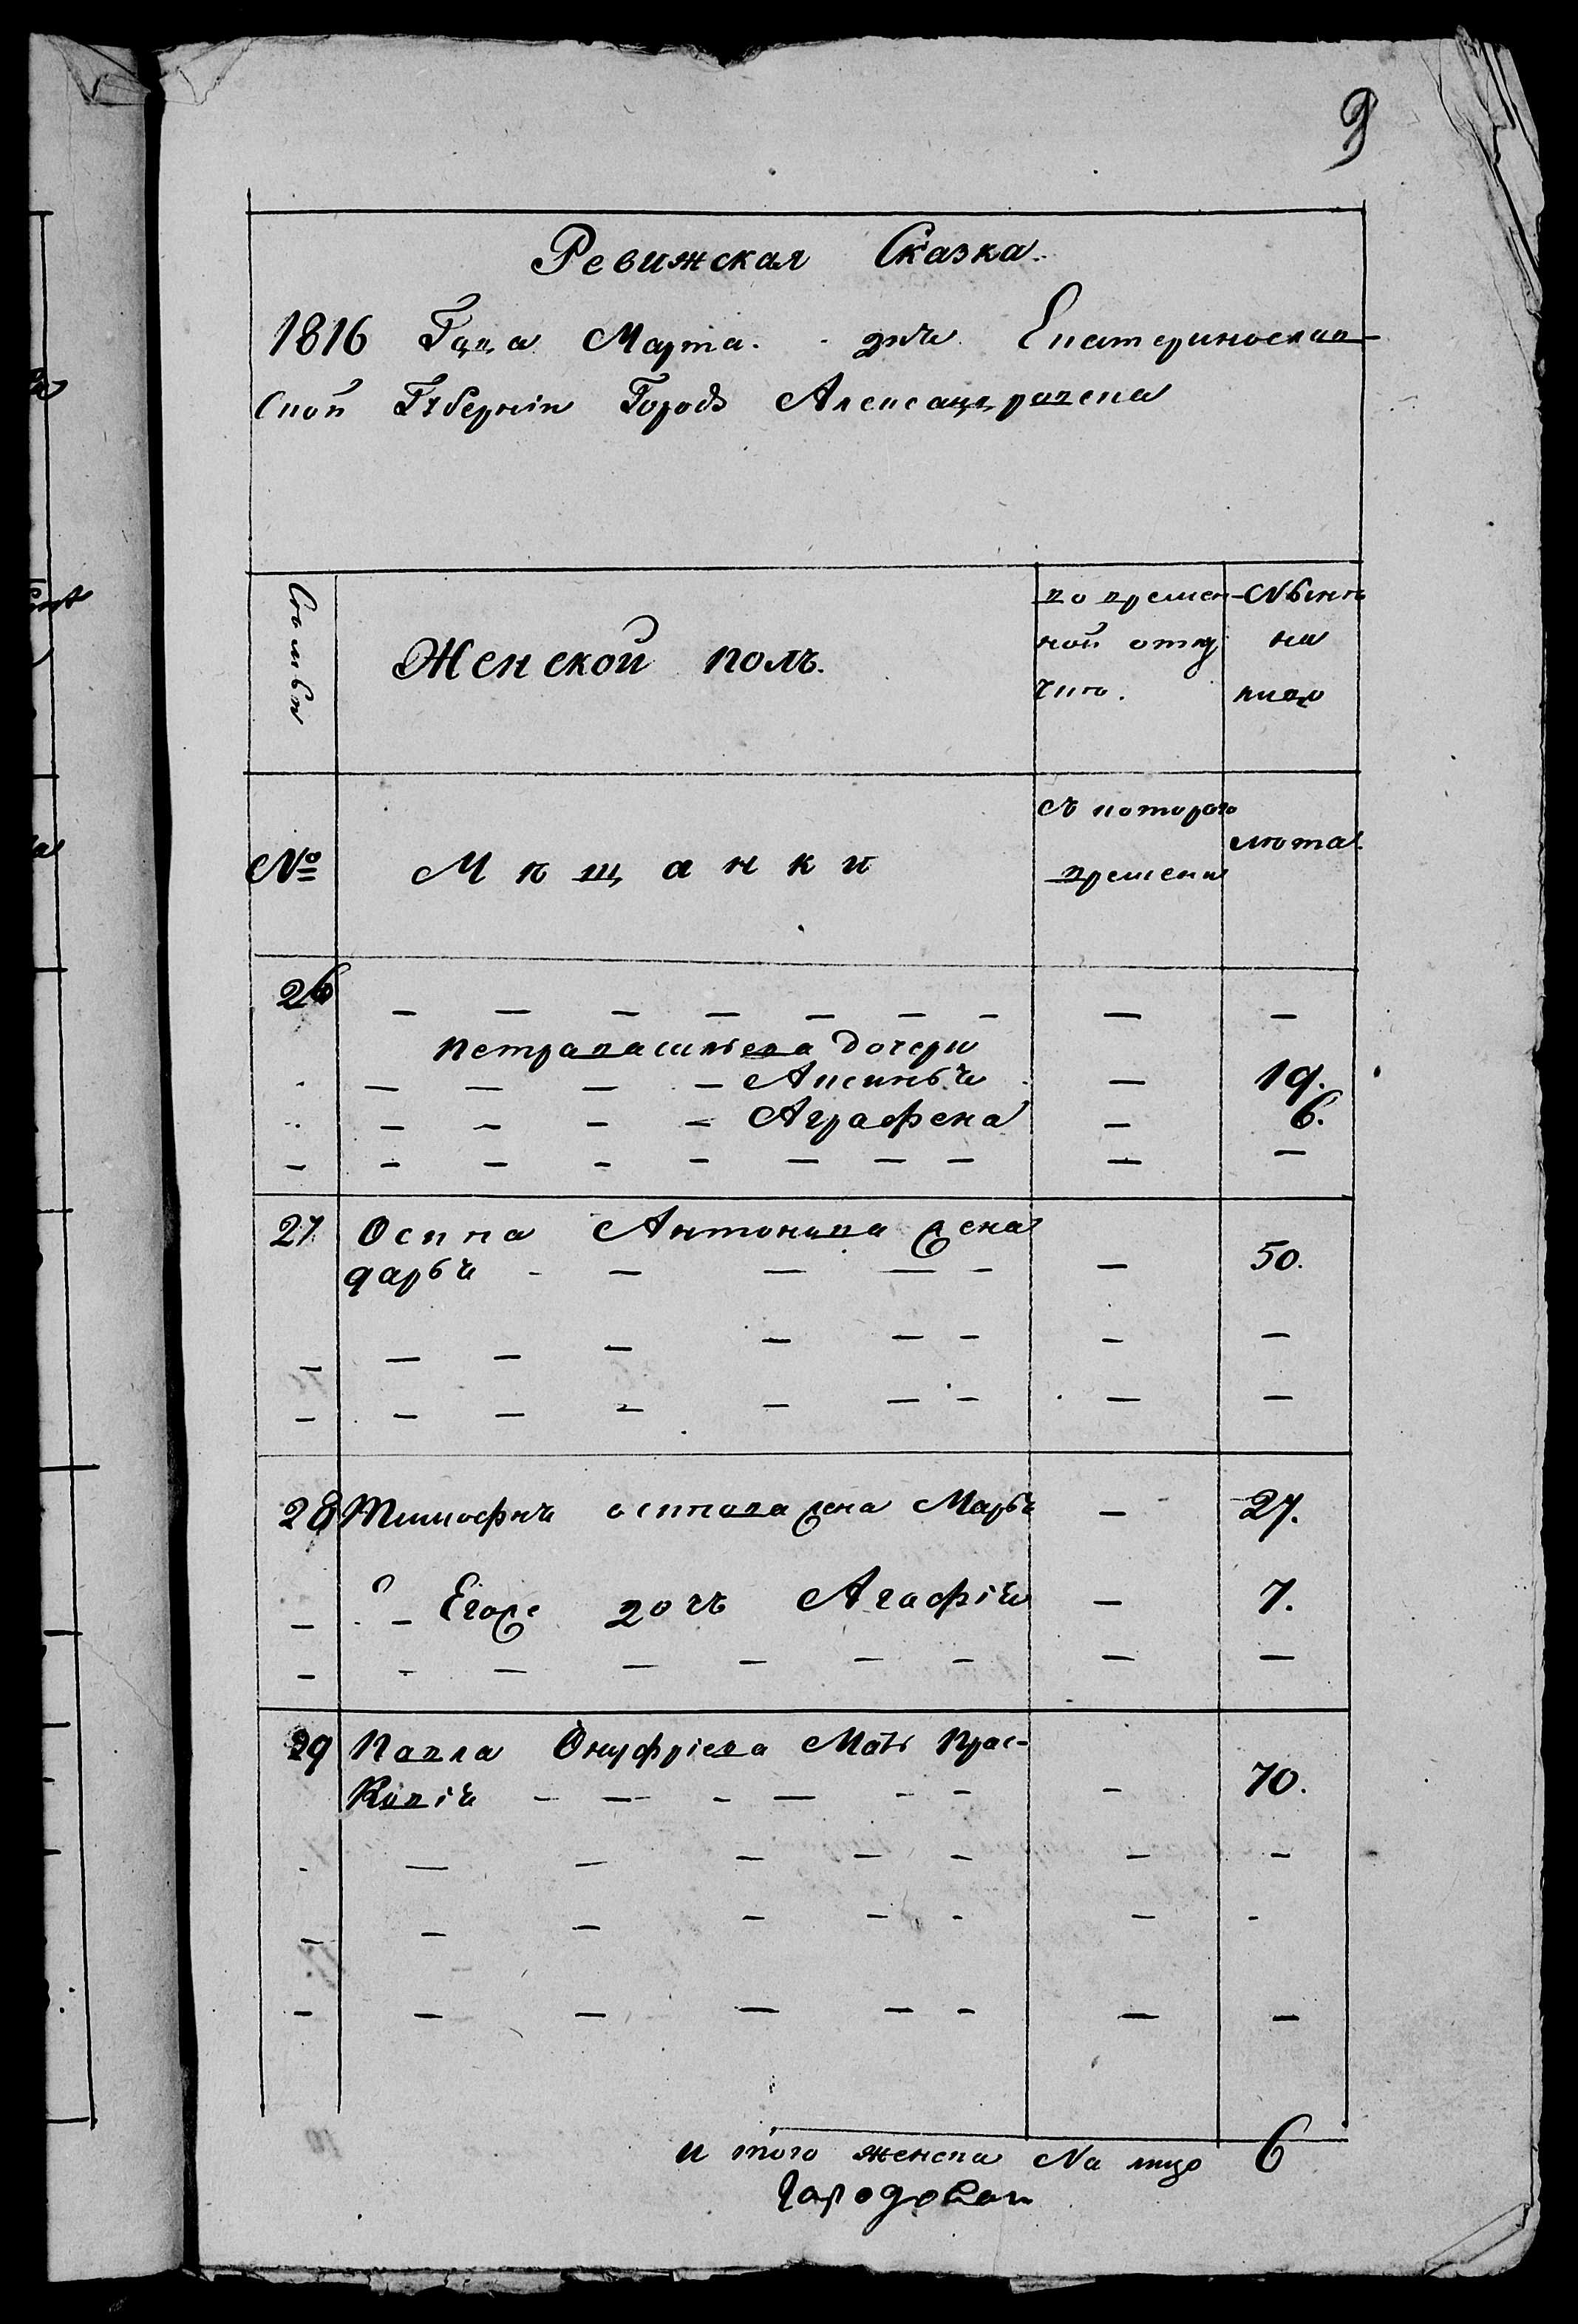 9
Ревижская Сказка.
1816 Года Марта. дня Екатеринослав-
Ской Губерніи Городъ Александровска
Сѣмьи
Женской полъ.
во времен-
ной отлу
чкѣ.
Нынѣ
на
лицо
№
Мѣщанки
съ котораго
времени
лѣта.
26 — — — — — — — — —
Петра васильева дочери
— — — — Аксинья — 19.
— — — — Аграфена — 6.
— — — — — — — — — —
27 Осипа Антонова жена
дарья — — — — — 50.
— — — — — — — —
— — — — — — — —
28 Тимофѣя осипова жена Марья — 27.
— — Егора дочь Агафія — 7.
— — — — — — — — —
29 Павла Онуфріева Мать Прас-
Ковія — — — — — — — 70.
— — — — — — —
— — — — — — — -
— — — — — — — —
и того женска На лицо 6